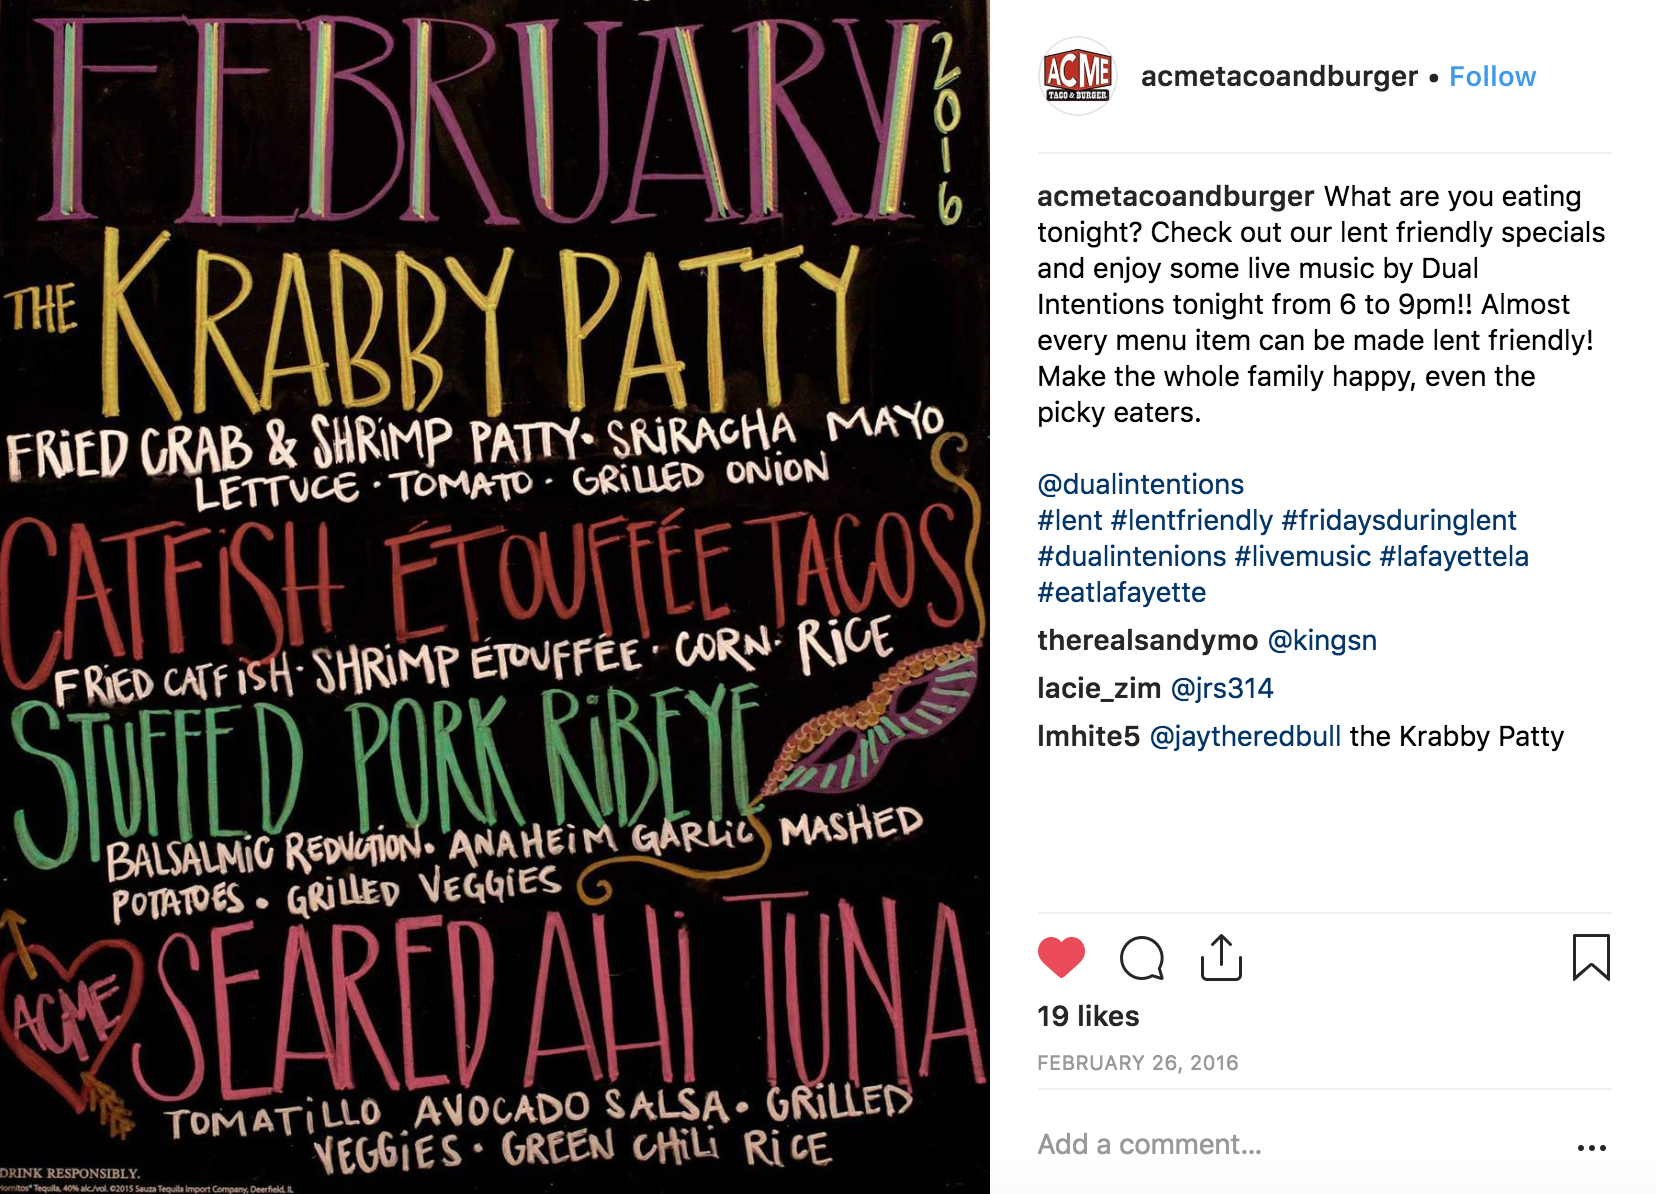 FEBRUARY
2016
THE KRABBY PATTY
FRIED CRAB & SHRIMP PATTY · SRIRACHA MAYO
LETTUCE · TOMATO · GRILLED ONION
CATFISH ÉTOUFFÉE TACOS
FRIED CATFISH · SHRIMP ÉTOUFFÉE · CORN · RICE
STUFFED PORK RIBEYE
BALSALMIC REDUCTION · ANAHEIM GARLIC MASHED
POTATOES · GRILLED VEGGIES
ACME
SEARED AHI TUNA
TOMATILLO AVOCADO SALSA · GRILLED
VEGGIES · GREEN CHILI RICE
DRINK RESPONSIBLY.
Hornitos® Tequila, 40% alc./vol. ©2015 Sauza Tequila Import Company, Deerfield, IL
ACME
TACO & BURGER
acmetacoandburger • Follow
acmetacoandburger What are you eating
tonight? Check out our lent friendly specials
and enjoy some live music by Dual
Intentions tonight from 6 to 9pm!! Almost
every menu item can be made lent friendly!
Make the whole family happy, even the
picky eaters.
@dualintentions
#lent #lentfriendly #fridaysduringlent
#dualintenions #livemusic #lafayettela
#eatlafayette
therealsandymo @kingsn
lacie_zim @jrs314
lmhite5 @jaytheredbull the Krabby Patty
19 likes
FEBRUARY 26, 2016
Add a comment...